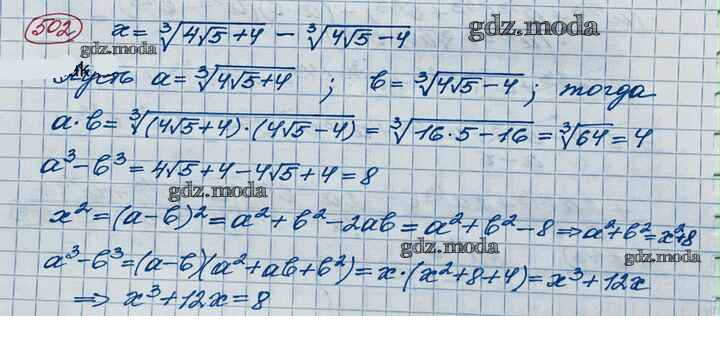 502 x = ∛(4√5+4) − ∛(4√5−4)
gdz.moda
gdz.moda
пусть a = ∛(4√5+4) ; b = ∛(4√5−4) ; тогда
a·b = ∛((4√5+4)·(4√5−4)) = ∛(16·5−16) = ∛64 = 4
a³−b³ = 4√5+4−4√5+4 = 8
gdz.moda
x² = (a−b)² = a²+b²−2ab = a²+b²−8 ⇒ a²+b² = x²+8
gdz.moda
gdz.moda
a³−b³ = (a−b)(a²+ab+b²) = x·(x²+8+4) = x³+12x
⇒ x³+12x = 8